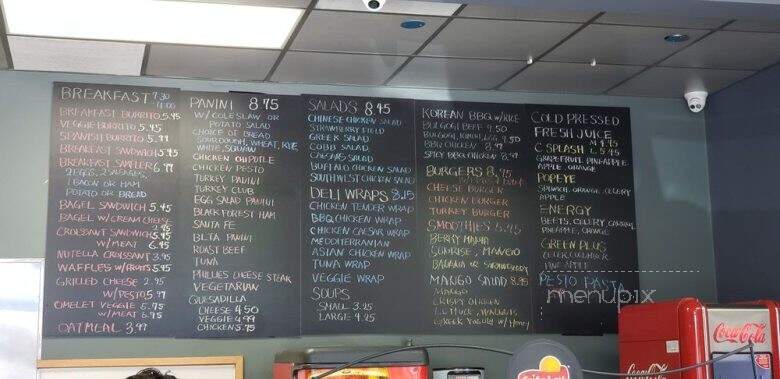 BREAKFAST 7:30
BREAKFAST BURRITO 5.45
VEGGIE BURRITO 5.45
SPANISH BURRITO 5.99
BREAKFAST SANDWICH 5.45
BREAKFAST SAMPLER 6.99
2 EGGS, 2 SAUSAGES,
1 BACON OR HAM
POTATO OR BREAD
BAGEL SANDWICH 5.45
BAGEL W/ CREAM CHEESE
2.95
CROISSANT SANDWICH
5.45
W/ MEAT 6.45
NUTELLA CROISSANT 3.95
WAFFLES W/ FRUITS 5.45
GRILLED CHEESE 2.95
W/ PESTO 5.99
OMELET VEGGIE 5.75
W/ MEAT 6.75
OATMEAL 3.99
PANINI 8.75
W/ COLE SLAW OR
POTATO SALAD
CHOICE OF BREAD
SOURDOUGH, WHEAT, RYE
WHITE,
CHICKEN CHIPOTLE
CHICKEN PESTO
TURKEY PANINI
TURKEY CLUB
EGG SALAD PANINI
BLACK FOREST HAM
SANTA FE
BLTA PANINI
ROAST BEEF
TUNA
PHILLIES CHEESE STEAK
VEGETARIAN
QUESADILLA
CHEESE 4.50
VEGGIE 4.99
CHICKEN 5.75
SALADS 8.45
CHINESE CHICKEN SALAD
STRAWBERRY FIELD
GREEK SALAD
COBB SALAD
CAESAR SALAD
BUFFALO CHICKEN SALAD
SOUTHWEST CHICKEN SALAD
DELI WRAPS 8.25
CHICKEN TENDER WRAP
BBQ CHICKEN WRAP
CHICKEN CAESAR WRAP
MEDITERRANEAN
ASIAN CHICKEN WRAP
TUNA WRAP
VEGGIE WRAP
SOUPS
SMALL 3.25
LARGE 4.25
KOREAN BBQ W/ RICE
BULGOGI BEEF 9.50
BULGOGI, 9.50
BBQ CHICKEN 8.99
SPICY BBQ CHICKEN 8.99
BURGERS 8.75
CHEESE BURGER
CHICKEN BURGER
TURKEY BURGER
SMOOTHIES 5.45
BERRY MANIA
SUNRISE, MANGO
BANANA OR STRAWBERRY
MANGO SALAD 8.95
MANGO
CRISPY CHICKEN
LETTUCE, WALNUTS
GREEK YOGURT W/ HONEY
COLD PRESSED
FRESH JUICE
M 4.45
C SPLASH L 5.45
GRAPEFRUIT, PINEAPPLE
APPLE, ORANGE
POPEYE
SPINACH, ORANGE, CELERY
APPLE
ENERGY
BEETS, CELERY, CARROT,
PINEAPPLE, ORANGE
GREEN PLUS
CELERY, CUCUMBER
PINE APPLE
PESTO PASTA
menupix
Coca-Cola
Coca-Cola